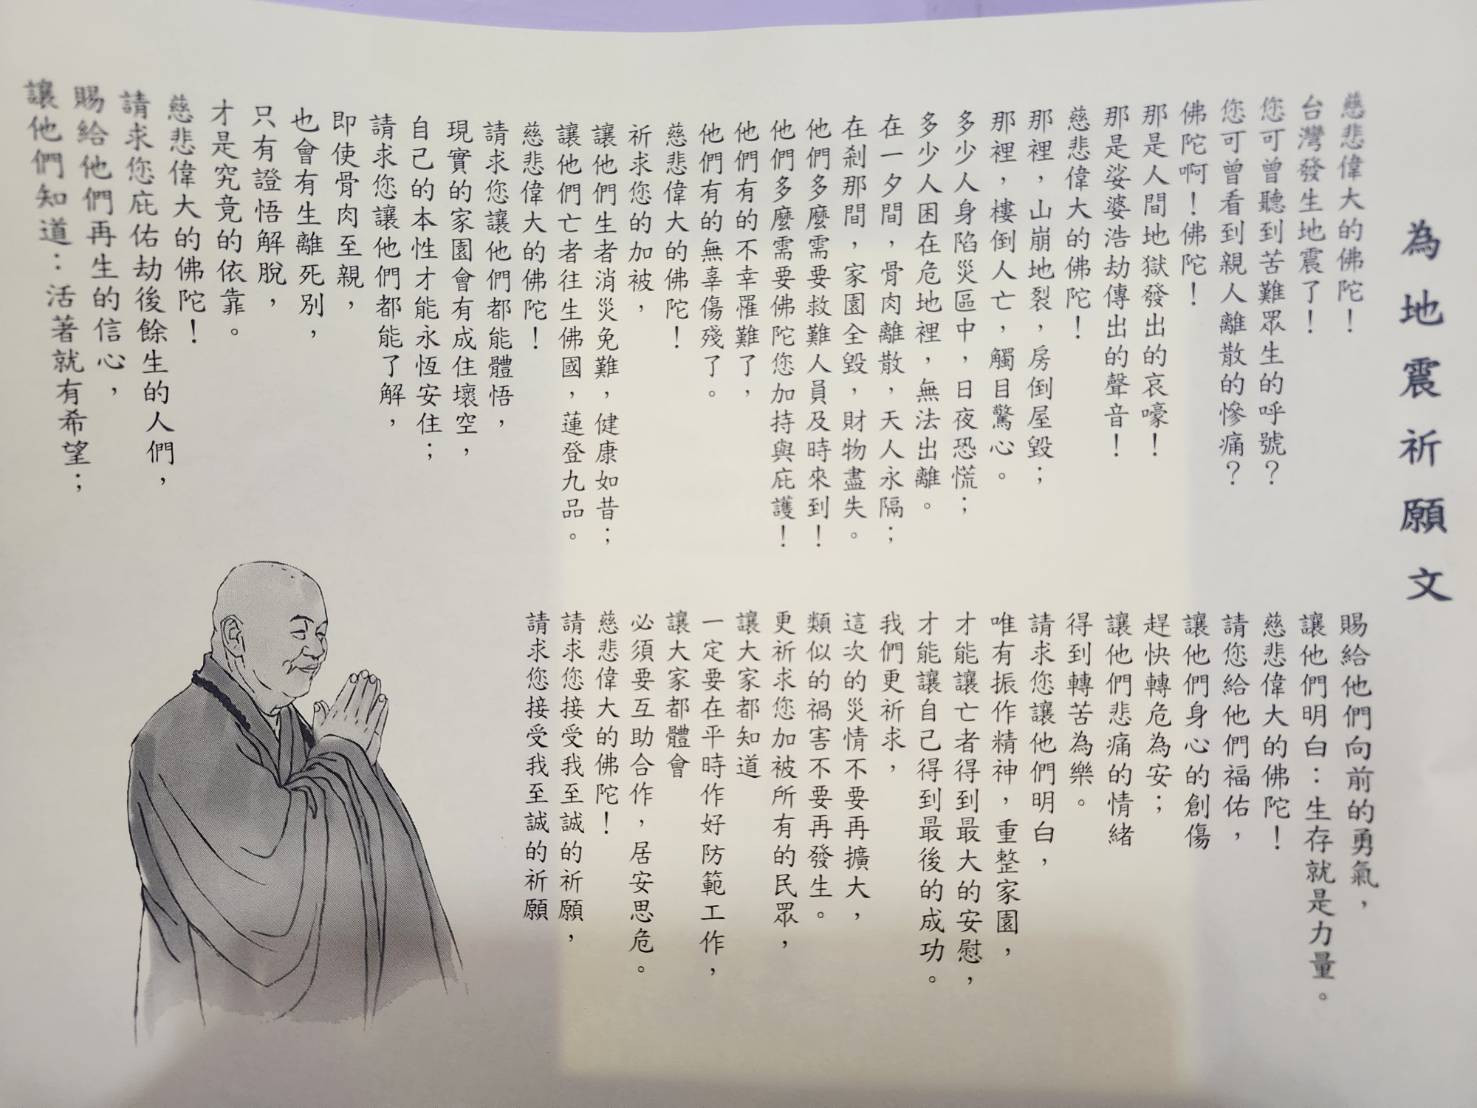 為地震祈願文
慈悲偉大的佛陀！
台灣發生地震了！
您可曾聽到苦難眾生的呼號？
您可曾看到親人離散的慘痛？
佛陀啊！佛陀！
那是人間地獄發出的哀嚎！
那是娑婆浩劫傳出的聲音！
慈悲偉大的佛陀！
那裡，山崩地裂，房倒屋毀；
那裡，樓倒人亡，觸目驚心。
多少人身陷災區中，日夜恐慌；
多少人困在危地裡，無法出離。
在一夕間，骨肉離散，天人永隔；
在剎那間，家園全毀，財物盡失。
他們多麼需要救難人員及時來到！
他們多麼需要佛陀您加持與庇護！
他們有的不幸罹難了，
他們有的無辜傷殘了。
慈悲偉大的佛陀！
祈求您的加被，
讓他們生者消災免難，健康如昔；
讓他們亡者往生佛國，蓮登九品。
慈悲偉大的佛陀！
請求您讓他們都能體悟，
現實的家園會有成住壞空，
自己的本性才能永恆安住；
請求您讓他們都能了解，
即使骨肉至親，
也會有生離死別，
只有證悟解脫，
才是究竟的依靠。
慈悲偉大的佛陀！
請求您庇佑劫後餘生的人們，
賜給他們再生的信心，
讓他們知道：活著就有希望；
賜給他們向前的勇氣，
讓他們明白：生存就是力量。
慈悲偉大的佛陀！
請您給他們福佑，
讓他們身心的創傷
趕快轉危為安；
讓他們悲痛的情緒
得到轉苦為樂。
請求您讓他們明白，
唯有振作精神，重整家園，
才能讓亡者得到最大的安慰，
才能讓自己得到最後的成功。
我們更祈求，
這次的災情不要再擴大，
類似的禍害不要再發生。
更祈求您加被所有的民眾，
讓大家都知道
一定要在平時作好防範工作，
讓大家都體會
必須要互助合作，居安思危。
慈悲偉大的佛陀！
請求您接受我至誠的祈願，
請求您接受我至誠的祈願